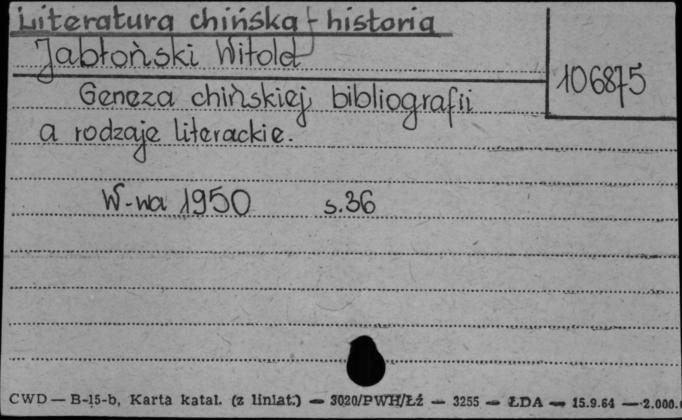 Literatura chińska - historia
Jabłoński Witold
106875
Geneza chińskiej bibliografii
a rodzaje literackie.
W-wa 1950 s.36
CWD — B-15-b, Karta katal. (z liniat.) — 3020/PWH/Łź — 3255 — ŁDA — 15.9.64 — 2.000.